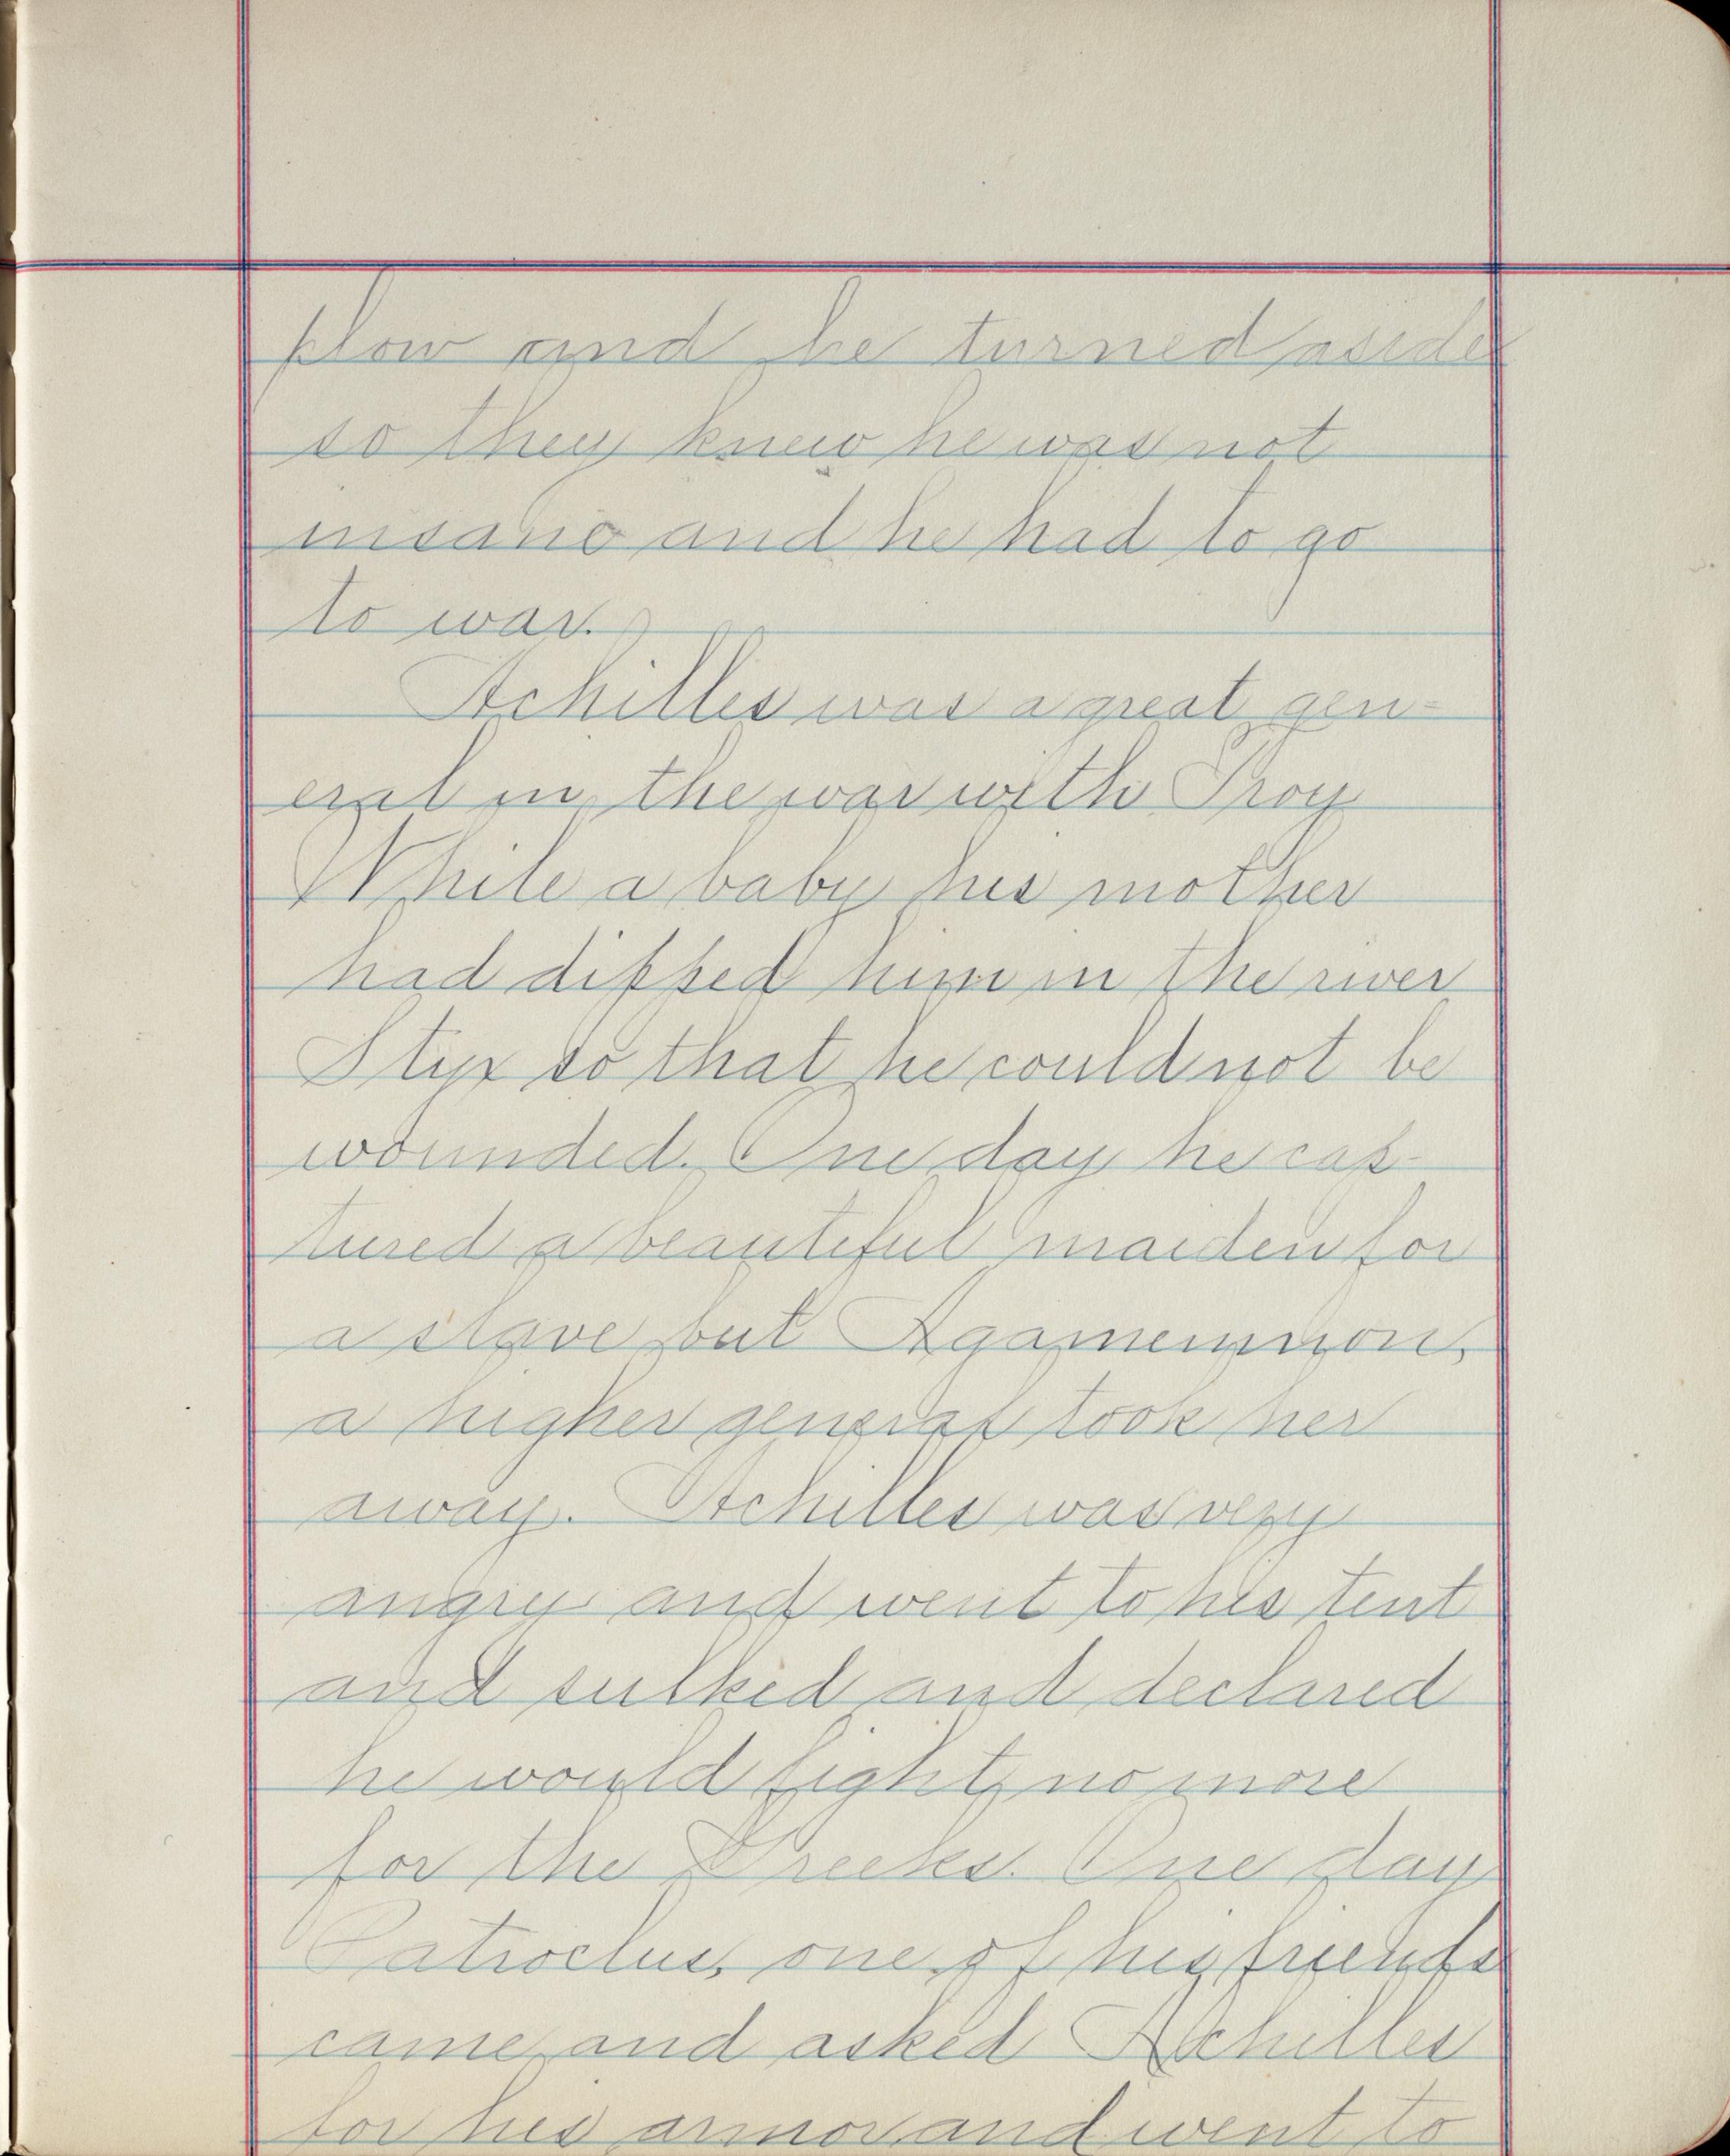 plow and he turned aside
so they knew he was not
insane and he had to go
to war.
Achilles was a great gen-
eral in the war with Troy
While a baby his mother
had dipped him in the river
Styx so that he could not be
wounded. One day he cap-
tured a beautiful maiden for
a slave but Agamemnon,
a higher general took her
away. Achilles was very
angry and went to his tent
and sulked and declared
he would fight no more
for the Greeks. One day
Patroclus, one of his friends
came and asked Achilles
for his armor and went to